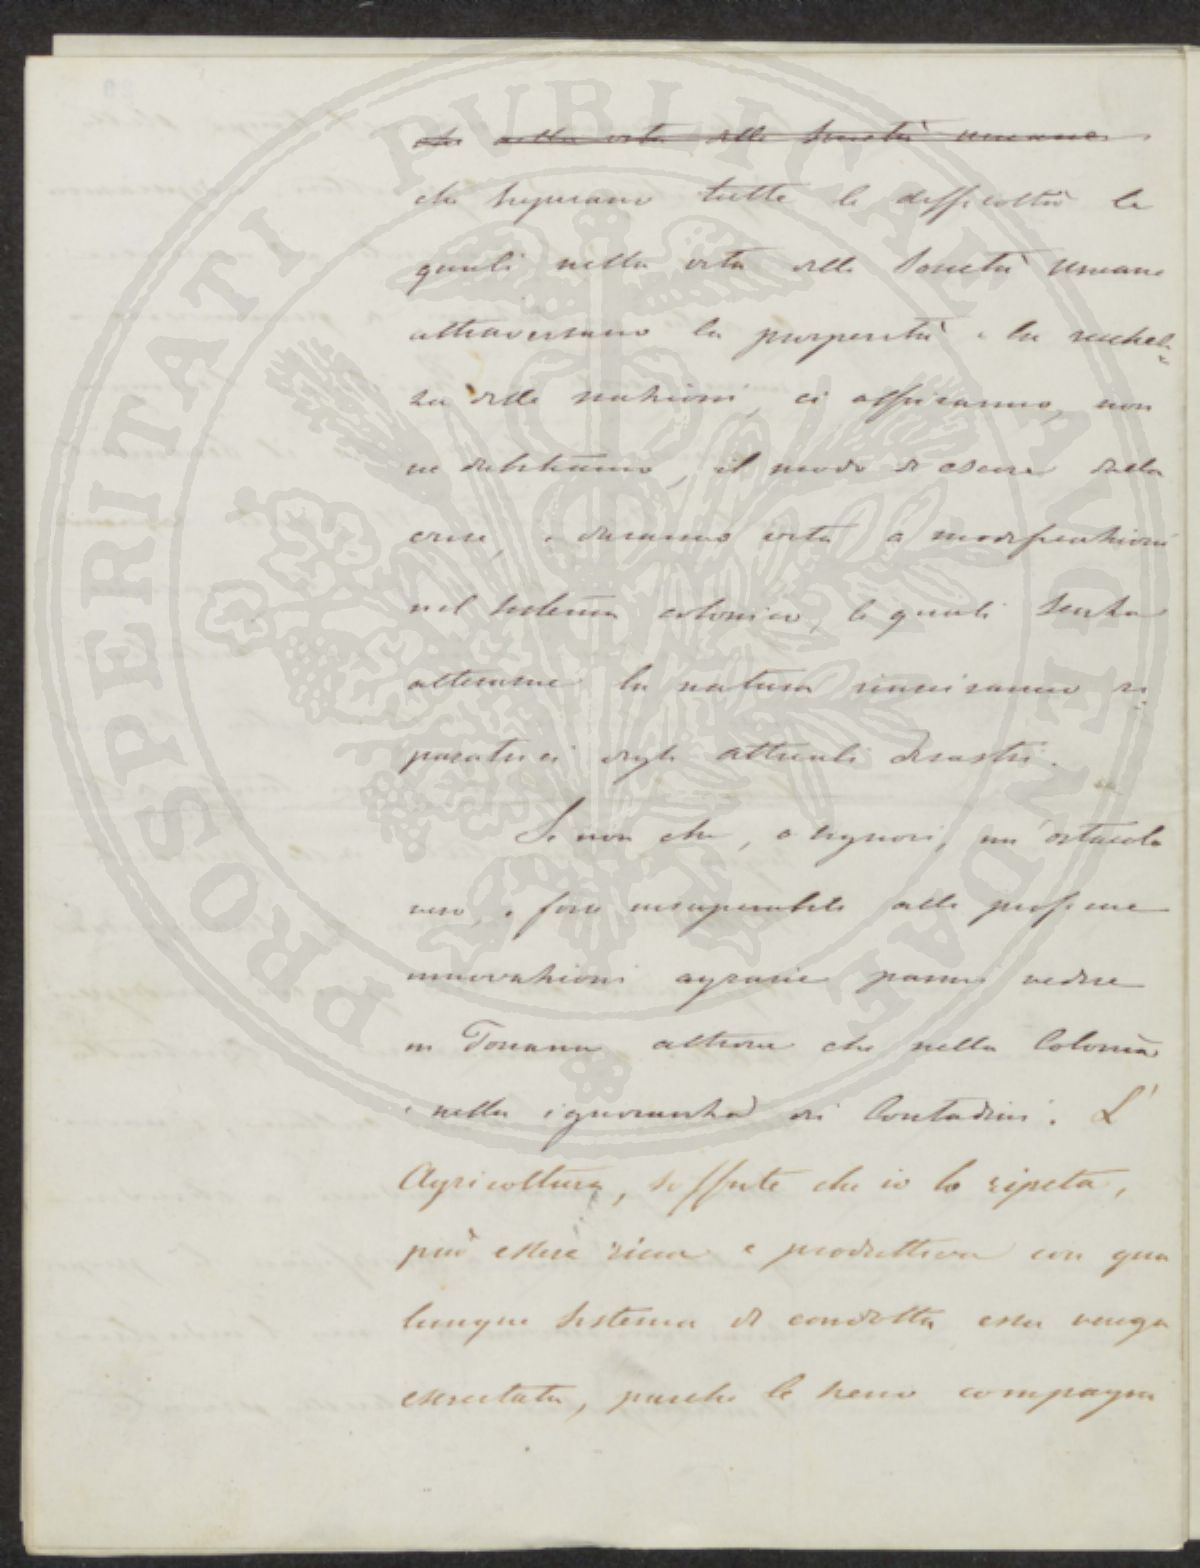 che alla vita della Società umana
che superano tutte le difficoltà le
quali nella vita della Società umana
attraversano la prosperità e la ricchez-
za delle nazioni, ci offriranno, non
ne dubitiamo, il modo di escire dalla
crise, e daranno vita a modificazioni
nel sistema colonico, le quali senza
alterarne la natura riusciranno ri-
paratrici degli attuali disastri.
Se non che, o signori, un'ostacolo
vero, e forse insuperabile alle proficue
innovazioni agrarie parmi vedere
in Toscana altrove che nella Colonia
e nella ignoranza dei Contadini. L'
Agricoltura, soffrite che io lo ripeta,
può essere ricca e produttiva con qua
lunque sistema di condotta essa venga
esercitata, purché le sieno compagni
PROSPERITATI PUBLICAE AUGENDAE